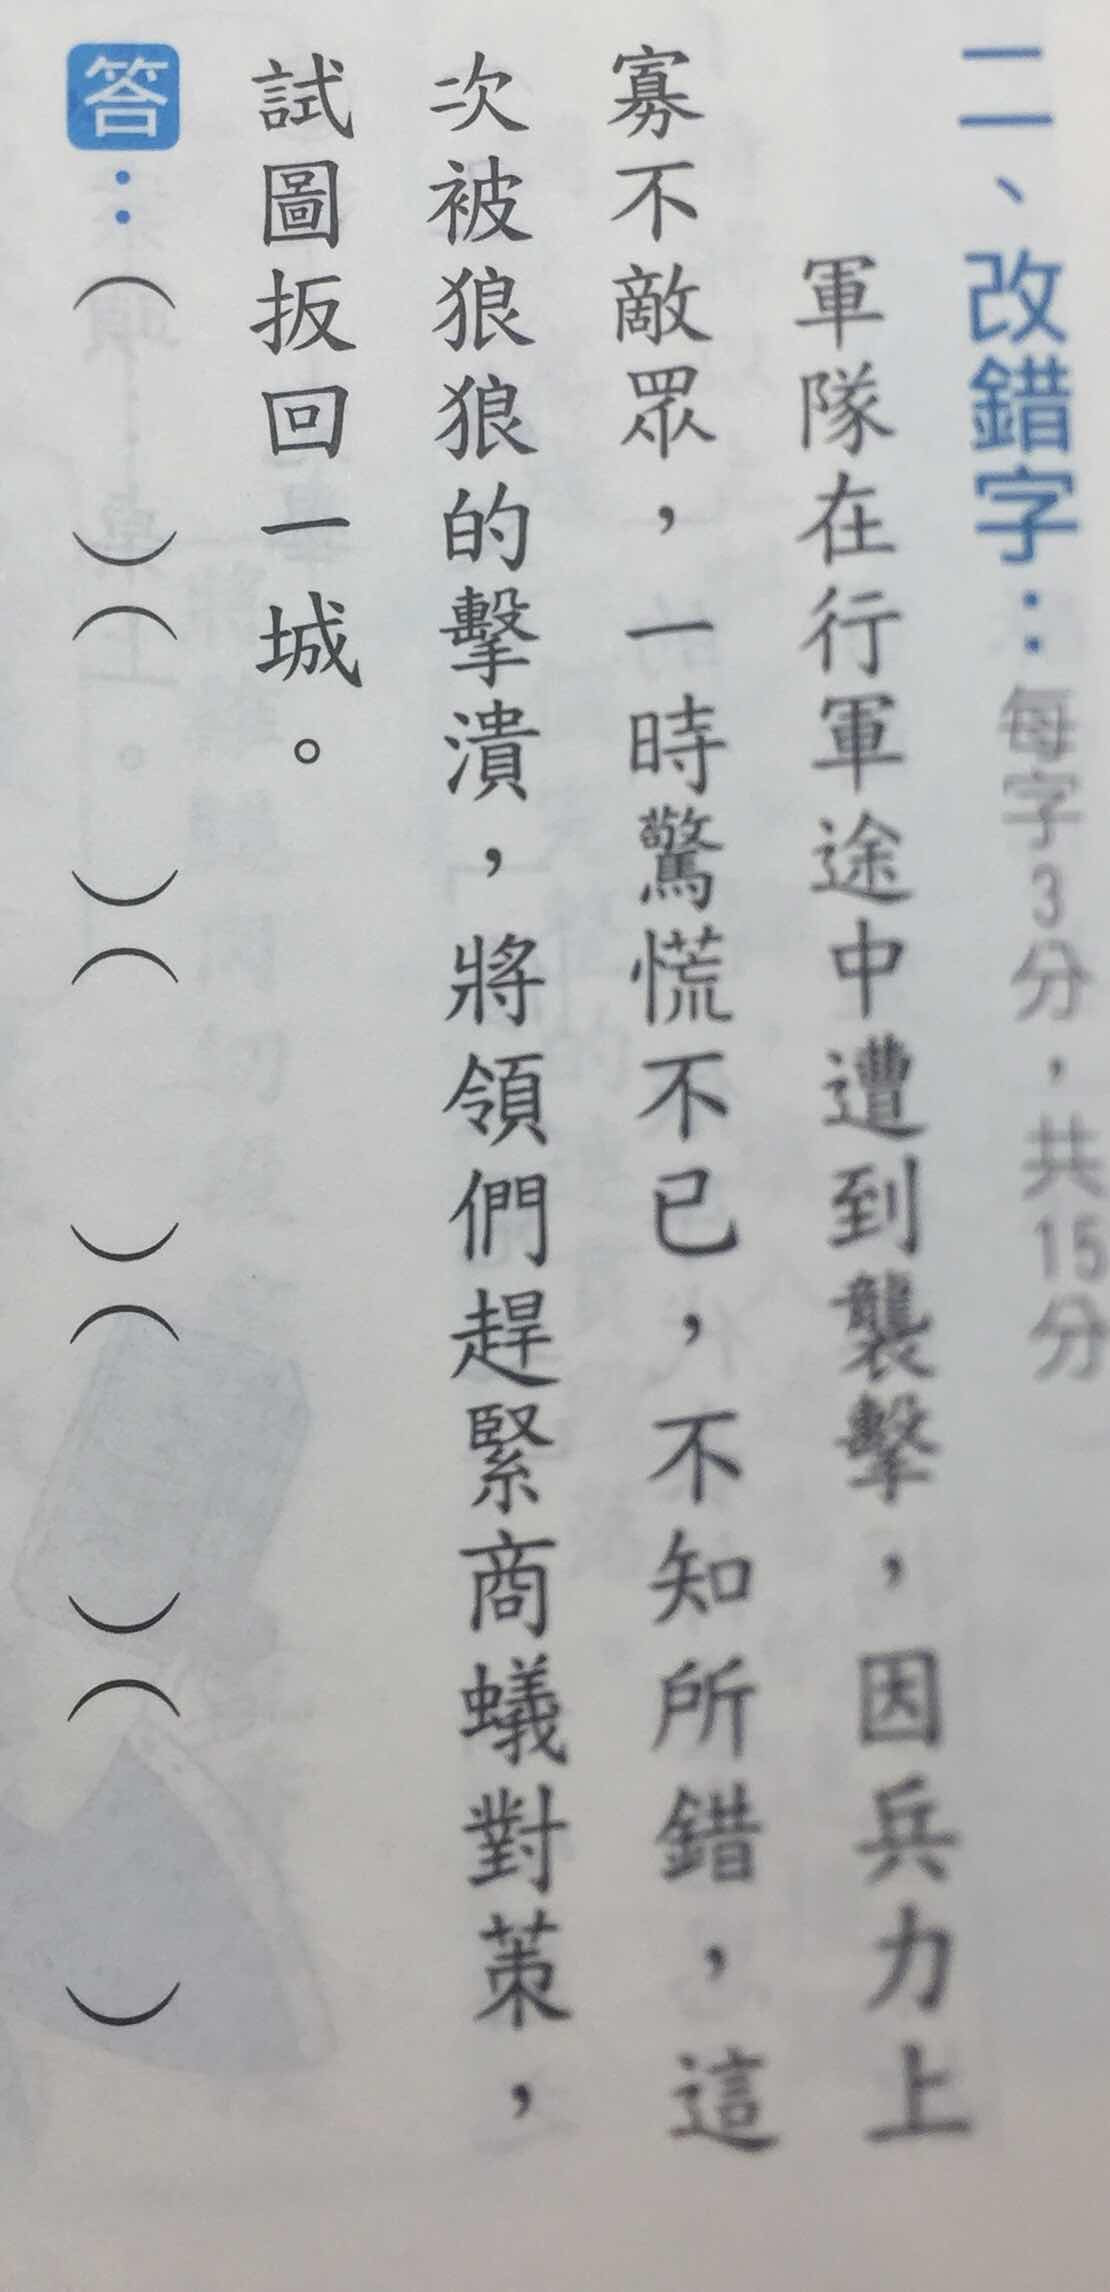 二、改錯字：每字3分，共15分
軍隊在行軍途中遭到襲擊，因兵力上
寡不敵眾，一時驚慌不已，不知所錯，這
次被狼狼的擊潰，將領們趕緊商蟻對策，
試圖扳回一城。
答：（　）（　）（　）（　）（　）